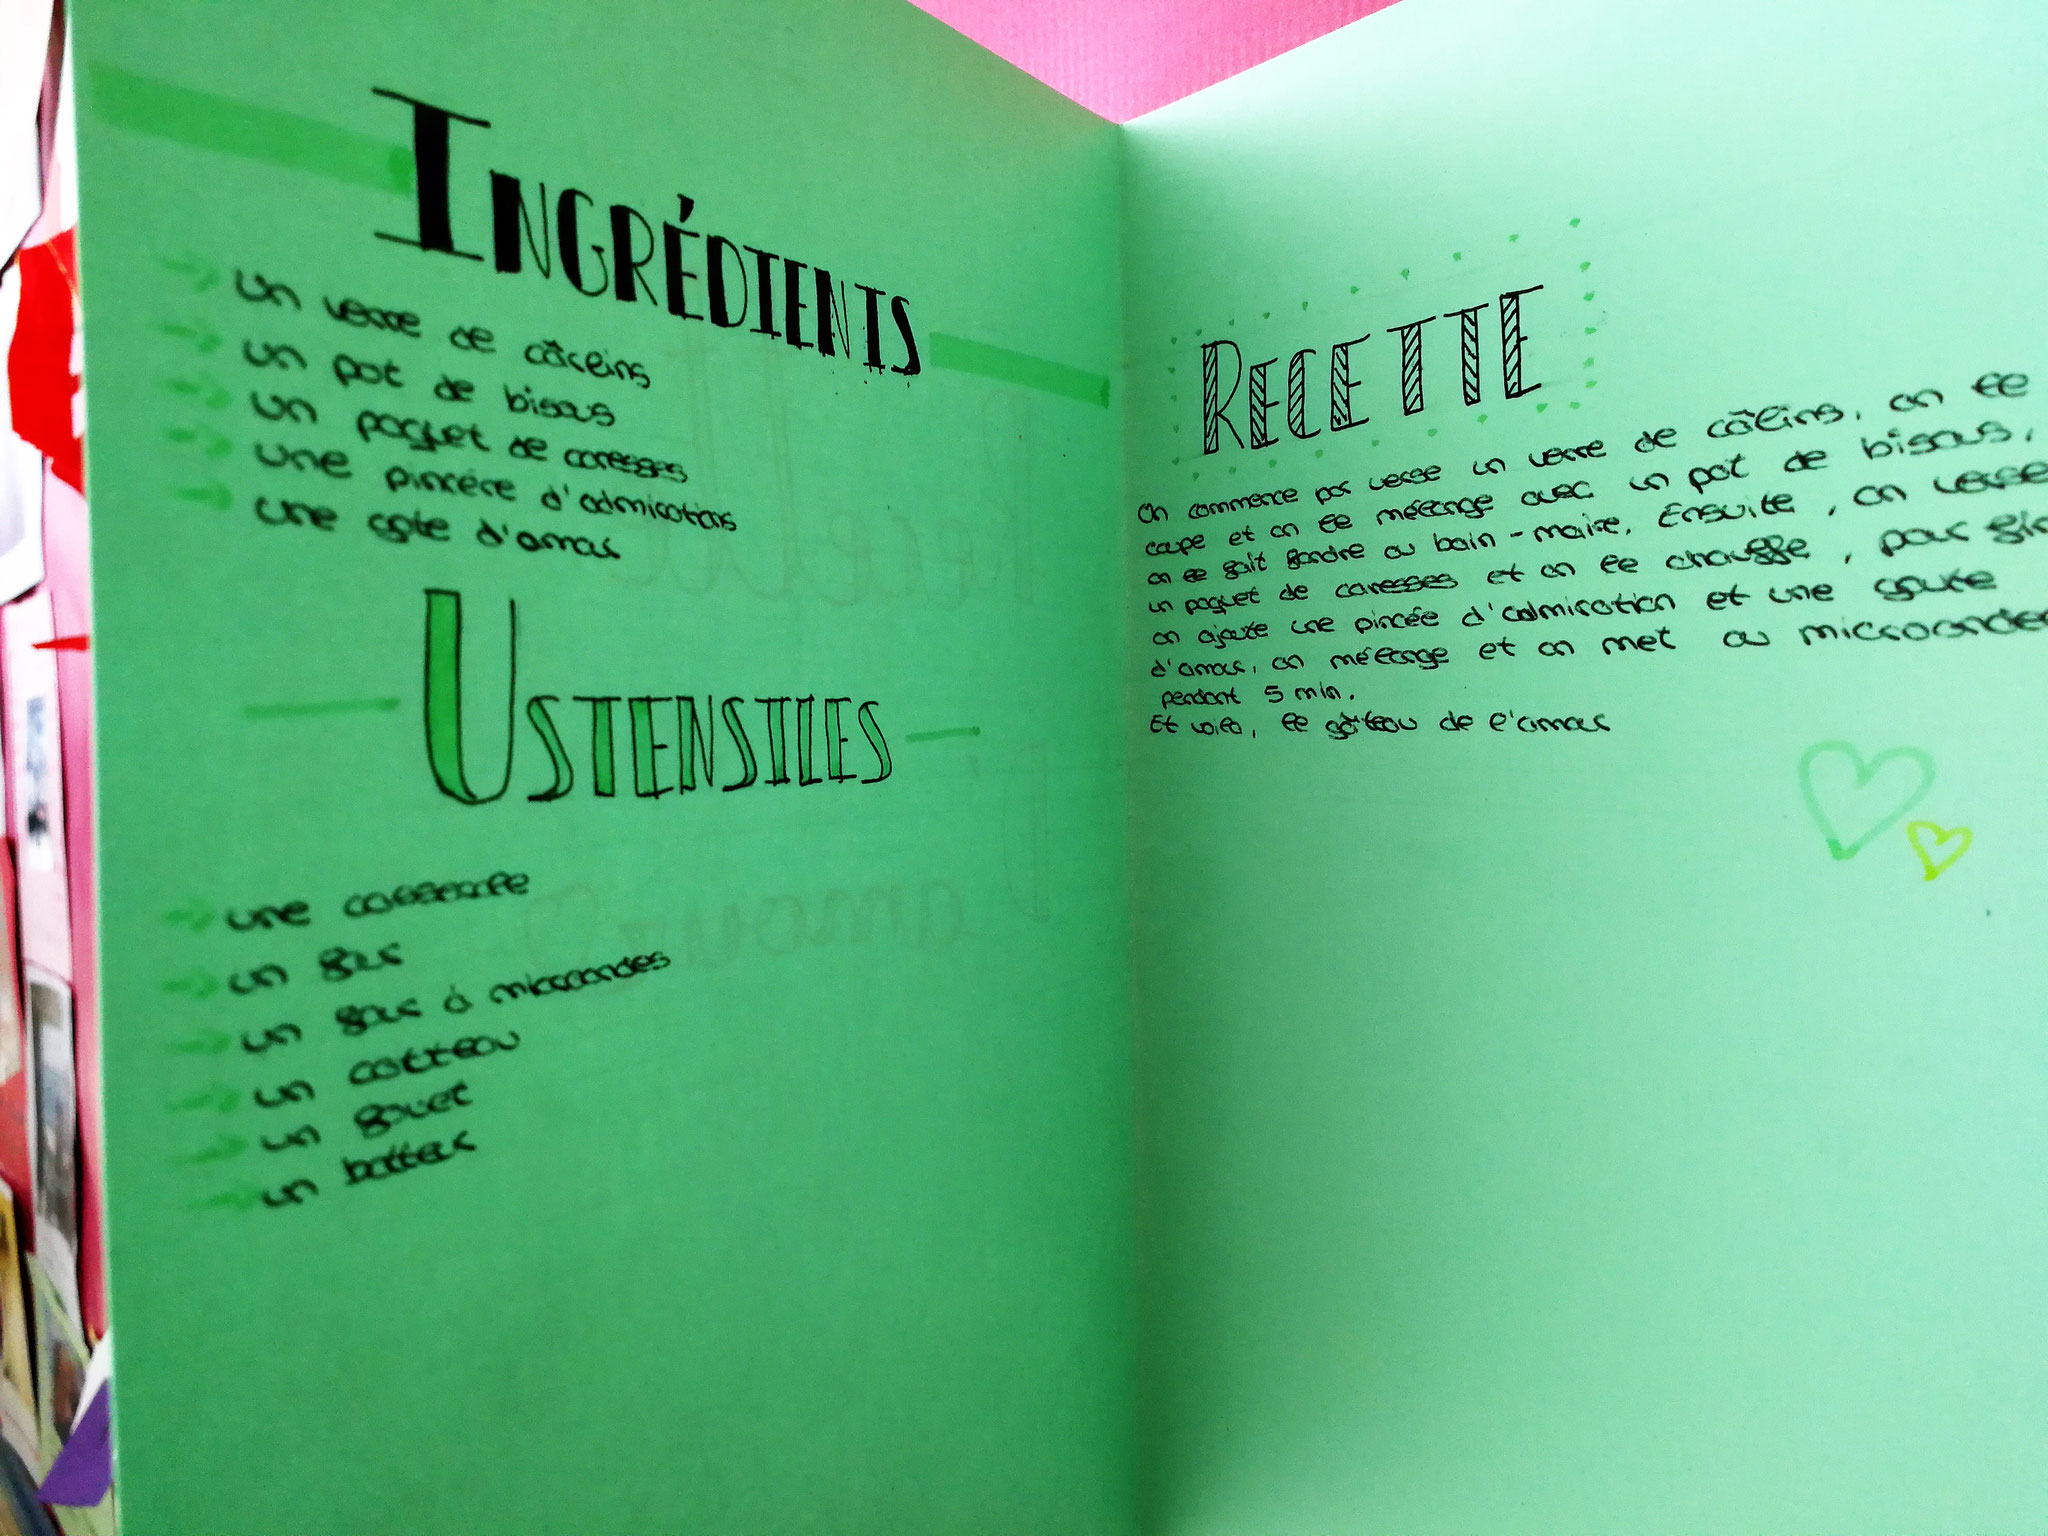 INGRÉDIENTS
un verre de câlins
un pot de bisous
un paquet de caresses
une pincére d'admirations
une goute d'amour
USTENSILES
une casserole
un four
un four à microondes
un couteau
un fouet
un batteur
RECETTE
On commence par verse un verre de câlins, on le
coupe et on le mélange avec un pot de bisous,
on le fait fondre au bain-marie. Ensuite, on verse
un paquet de caresses et on le chauffe, pour fini
on ajoute une pincée d'admiration et une goute
d'amour, on mélange et on met au microondes
pendant 5 min.
Et voila, le gâteau de l'amour
Recette
D'
amour